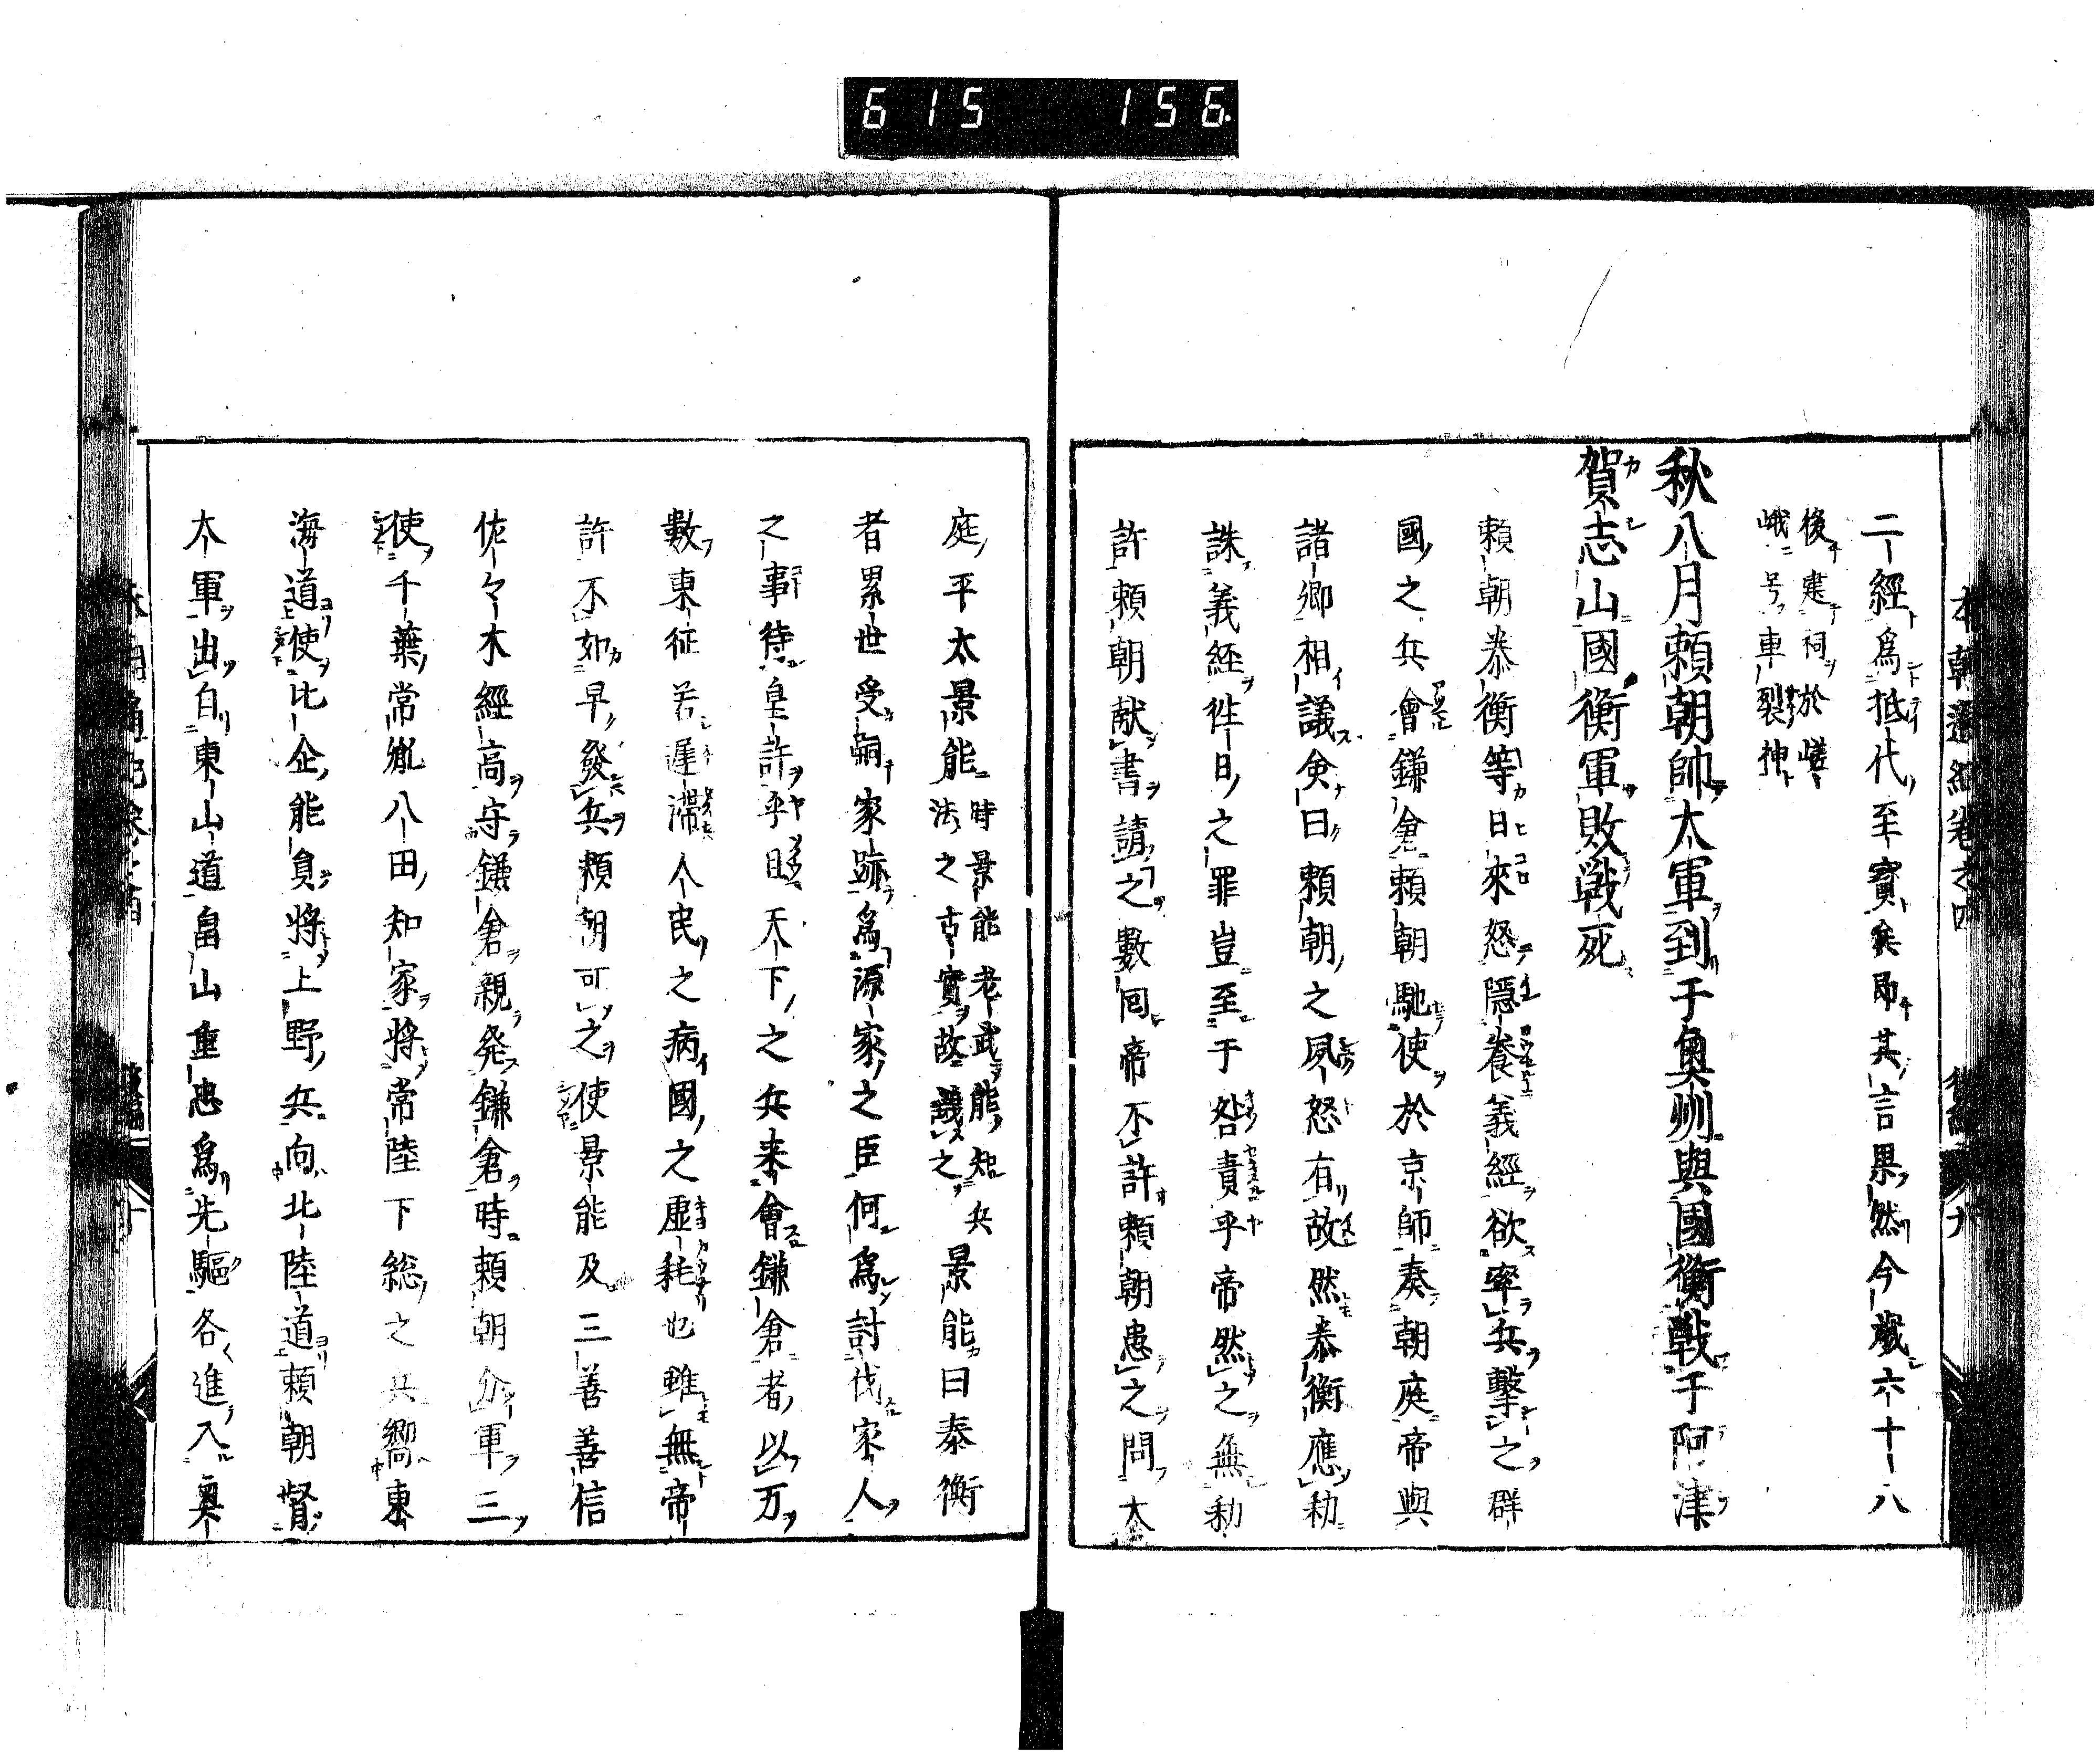 615 156
二經爲抵代至寶矣即其言果然今歲六十八
後建祠於嵯
峨号車裂神
秋八月頼朝帥大軍到于奧州與國衡戰于阿津
賀志山國衡軍敗戰死
頼朝泰衡等日來怒隱養義經欲率兵擊之群
國之兵會鎌倉頼朝馳使於京師奏朝庭帝與
諸卿相議僉曰頼朝之夙怒有故然泰衡應勅
誅義經徃日之罪豈至于咎責乎帝然之無勅
許頼朝献書請之數囘帝不許頼朝患之問大
庭平太景能
時景能老武能知兵
法之古實故議之
景能曰泰衡
者累世受嗣家跡爲源家之臣何爲討伐家人
之事待皇許乎且天下之兵来會鎌倉者以万
數東征若遲滯人民之病國之虚耗也雖無帝
許不如早發兵頼朝可之使景能及三善善信
佐々木經高守鎌倉親発鎌倉時頼朝分軍三
使千葉常胤八田知家將常陸下総之兵嚮東
海道使比企能員將上野兵向北陸道頼朝督
大軍出自東山道畠山重忠爲先驅各進入奥